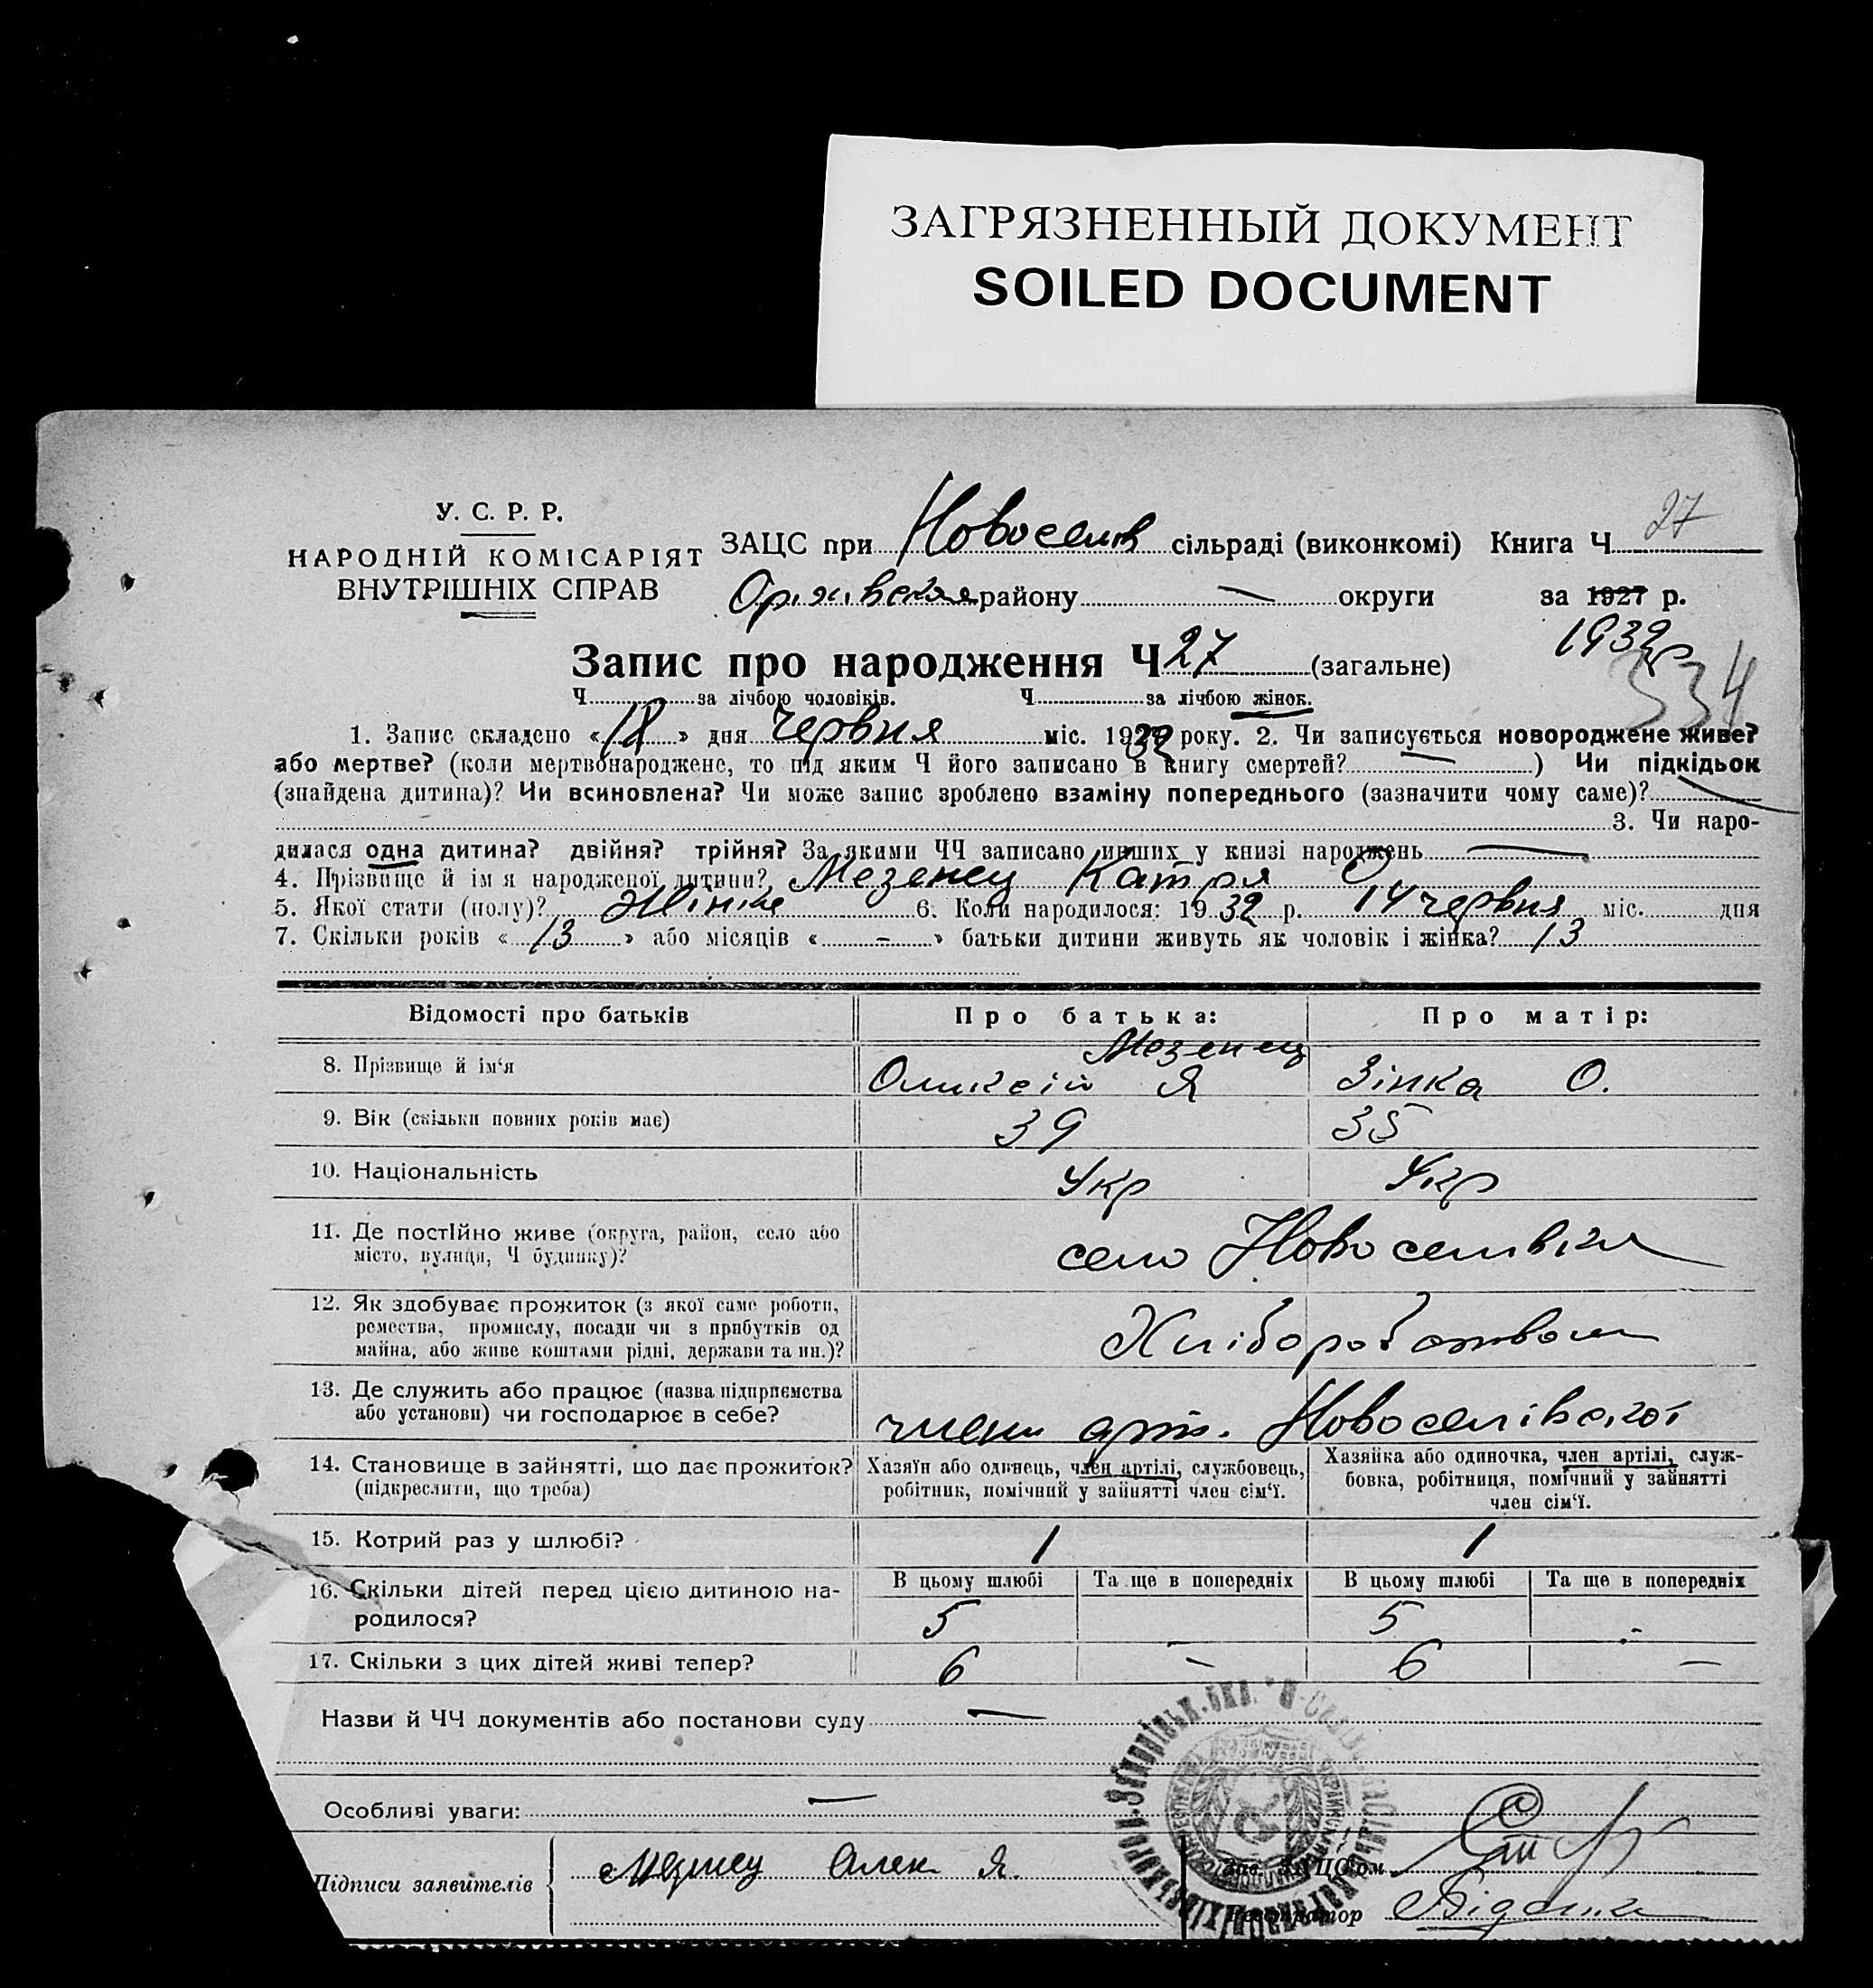 ЗАГРЯЗНЕННЫЙ ДОКУМЕНТ
SOILED DOCUMENT
У. С. Р. Р.
НАРОДНІЙ КОМІСАРІЯТ
ВНУТРІШНІХ СПРАВ
ЗАЦС при Новоселів сільраді (виконкомі) Книга Ч 27
району — округи за 1927 р.
1932р
Запис про народження Ч 27 (загальне)
334
Ч за лічбою чоловіків. Ч за лічбою жінок.
1. Запис складено « 18 » дня червня міс. 1932 року. 2. Чи записується новороджене живе?
або мертве? (коли мертвонароджене, то під яким Ч його записано в книгу смертей? — ) Чи підкідьок
(знайдена дитина)? Чи всиновлена? Чи може запис зроблено взаміну попереднього (зазначити чому саме)? —
3. Чи наро-
дилася одна дитина? двійня? трійня? За якими ЧЧ записано инших у книзі народжень —
4. Прізвище й ім'я народженої дитини? Мезенец Катря
5. Якої стати (полу)? 6. Коли народилося: 19 32 р. 14 червня міс. дня
7. Скільки років « 13 » або місяців « - » батьки дитини живуть як чоловік і жінка? 13
Відомості про батьків Про батька: Про матір:
Мезенец
8. Прізвище й ім'я Оликсій Я Зінка О.
9. Вік (скільки повних років має) 39 35
10. Національність Укр Укр
11. Де постійно живе (округа, район, село або
місто, вулиця, Ч будинку)? село Новоселівка
12. Як здобуває прожиток (з якої саме роботи,
ремества, промислу, посади чи з прибутків од
майна, або живе коштами рідні, держави та ин.)? Хліборобством
13. Де служить або працює (назва підприємства
або установи) чи господарює в себе? член арт. Новоселівської
14. Становище в зайнятті, що дає прожиток?
(підкреслити, що треба)
Хазяїн або одинець, член артілі, службовець,
робітник, помічний у зайнятті член сім'ї.
Хазяйка або одиночка, член артілі, служ-
бовка, робітниця, помічний у зайнятті
член сім'ї.
15. Котрий раз у шлюбі? 1 1
16. Скільки дітей перед цією дитиною на-
родилося?
В цьому шлюбі Та ще в попередніх В цьому шлюбі Та ще в попередніх
5 5 -
17. Скільки з цих дітей живі тепер? 6 — 6 —
Назви й ЧЧ документів або постанови суду —
Особливі уваги: —
Підписи заявителів Мезенец Олек Я.
Зав. ЗАЦС'ом
Реєстратор